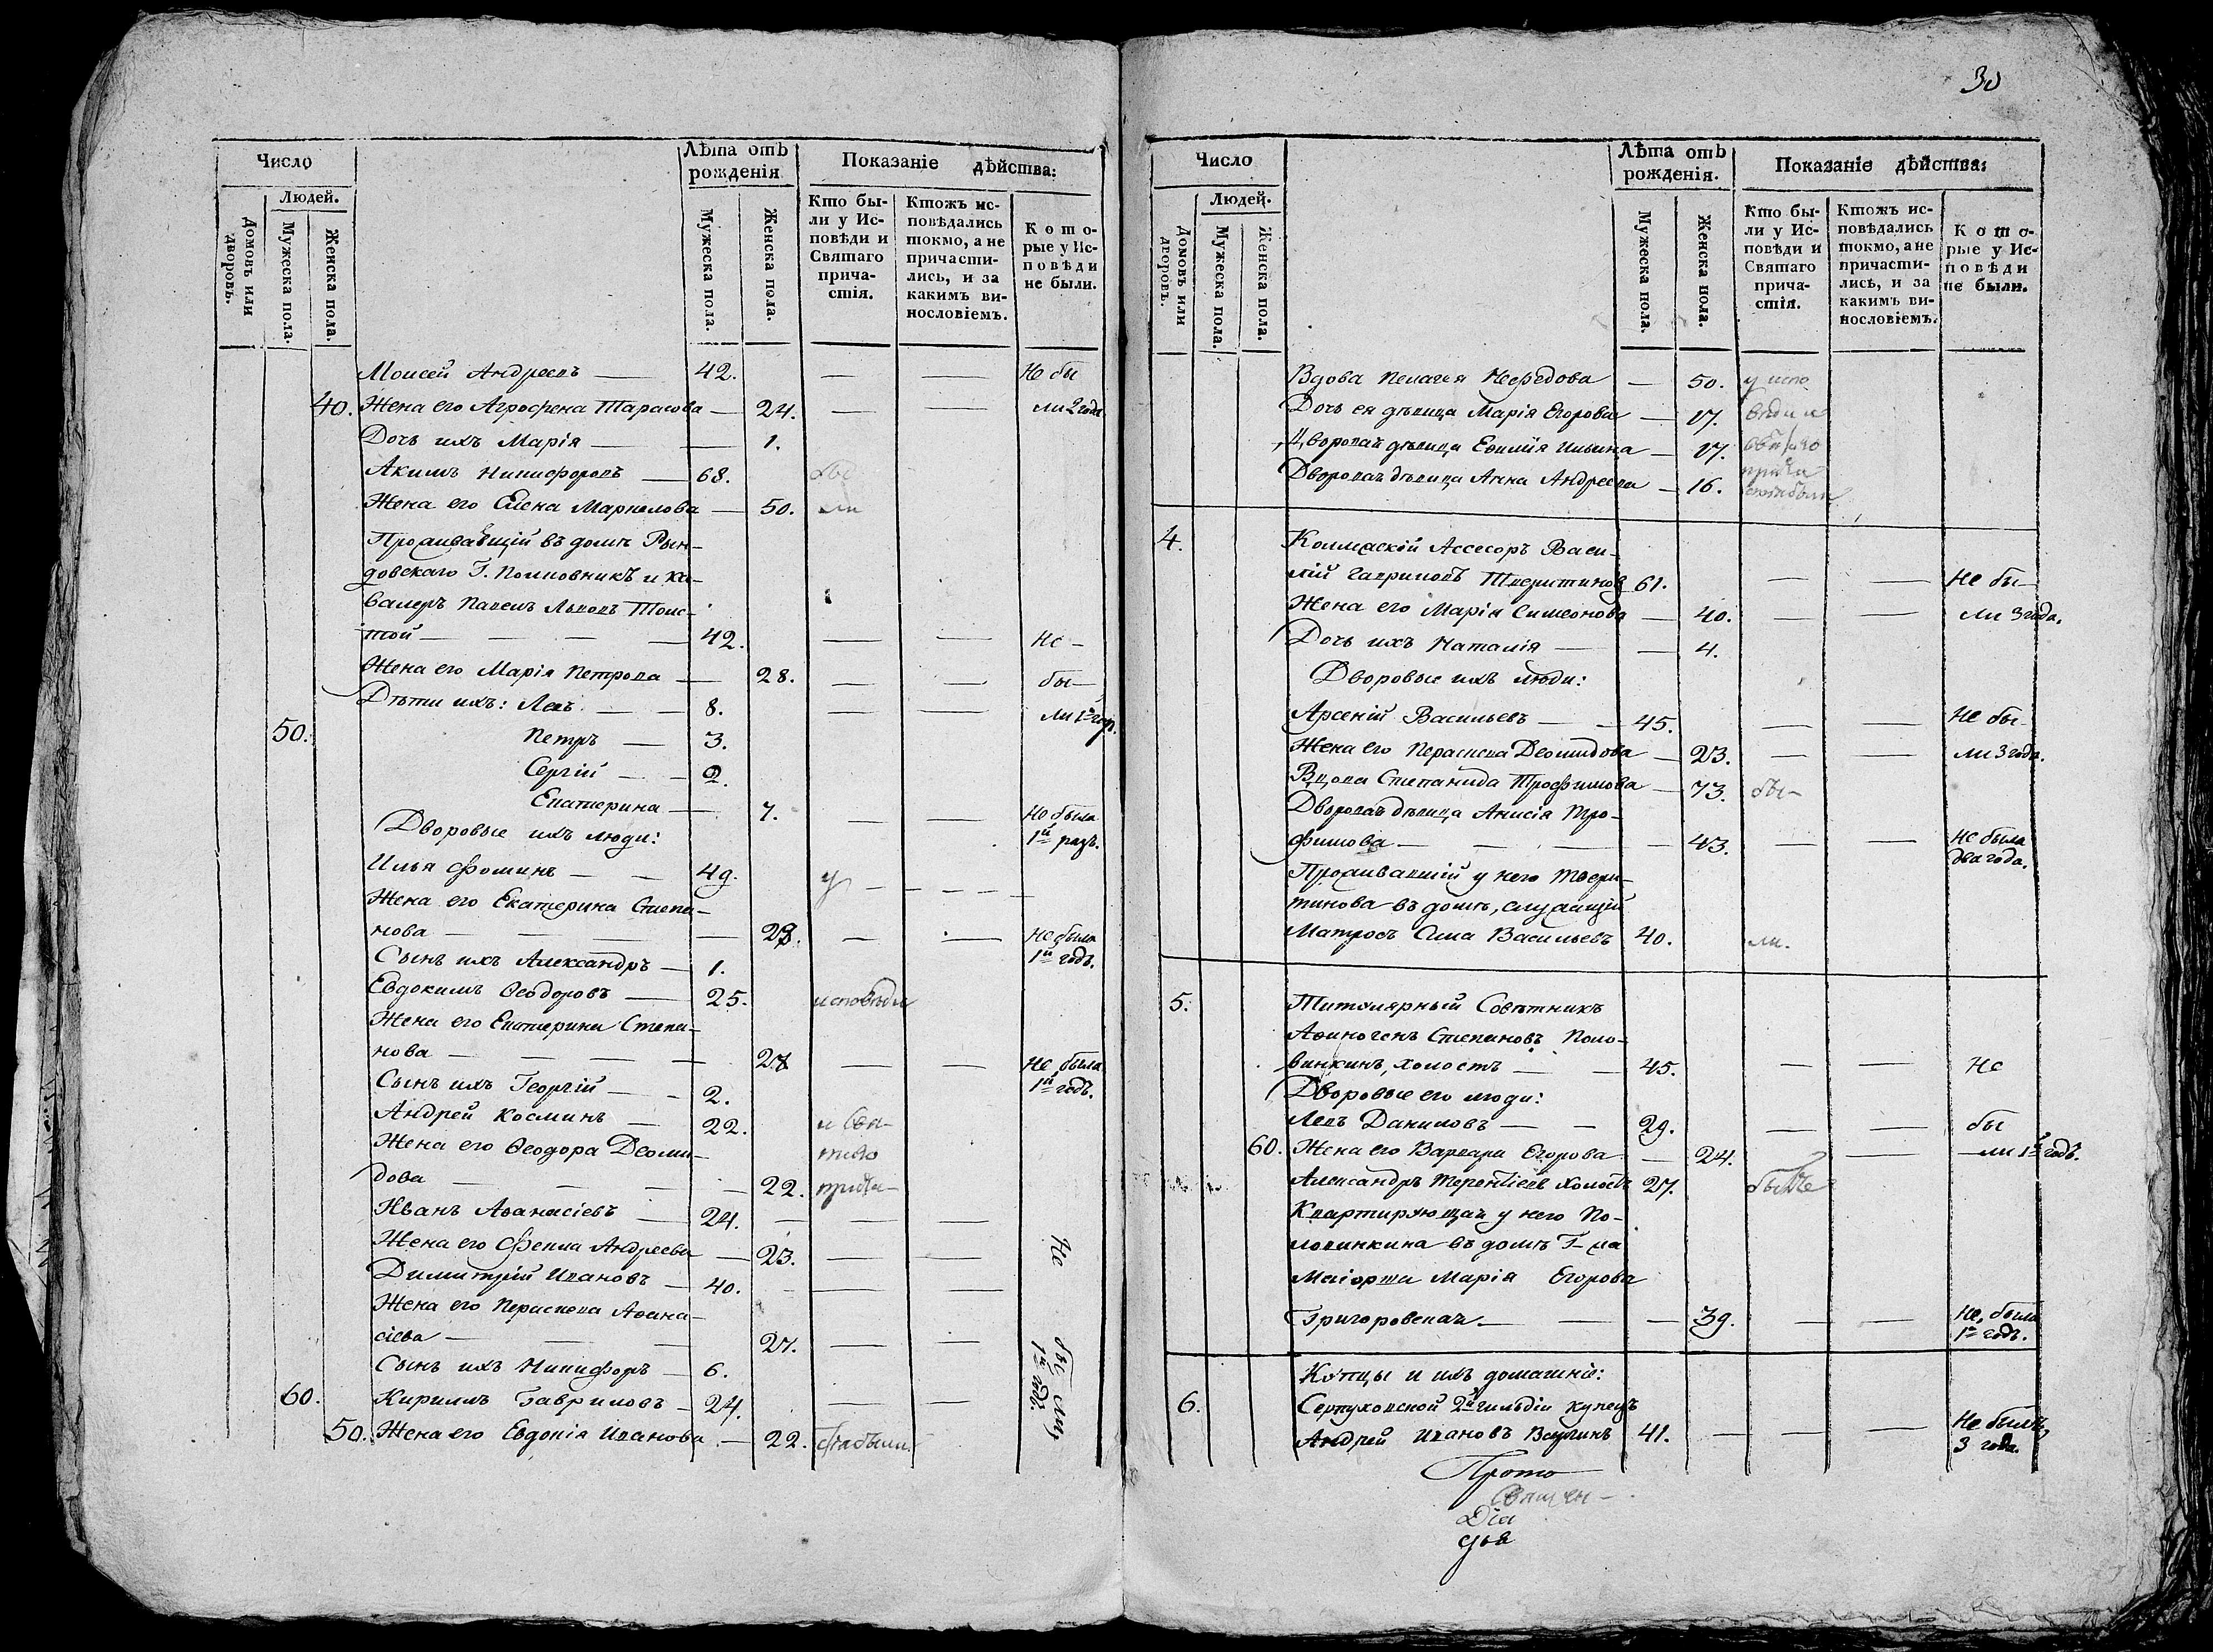 30
Число
Лѣта отъ рожденія
Показаніе дѣйства:
Людей.
Домовъ или дворовъ.
Мужеска пола.
Женска пола.
Мужеска пола.
Женска пола.
Кто бы-
ли у Ис-
повѣди и
Святаго
прича-
стія.
Ктожъ ис-
повѣдались
токмо, а не
причасти-
лись, и за
какимъ ви-
нословіемъ.
Кото-
рые у Ис-
повѣди
не были.
Моисей Андреевъ — 42. — — Не бы
40. Жена его Агрофена Тарасова — 24. — — ли 2 года
Дочь ихъ Марія — — 1.
Акимъ Никифоровъ — 68. бы
Жена его Елена Маркелова — 50. ли
Проживающій въ домѣ Рын-
довскаго Г. Полковникъ и ка-
валеръ Павелъ Львовъ Толс-
той — — — — 42. — — Не —
Жена его Марія Петрова — 28. — — бы —
Дѣти ихъ: Левъ — — 8. — — ли 1й годъ.
50. Петръ — 3.
Сергій — — 2.
Екатерина — 7. — — Не была
Дворовые ихъ люди: 1й разъ.
Илья Фоминъ — — 49. у — — — —
Жена его Екатерина Степа-
нова — — — — 28. — — Не была
Сынъ ихъ Александръ — 1. 1й годъ.
Евдокимъ Ѳеодоровъ — 25. исповѣди
Жена его Екатерина Степа-
нова — — — — 28 — — Не была
Сынъ ихъ Георгій — — 2. 1й годъ.
Андрей Косминъ — 22. и Свя-
Жена его Ѳеодора Деоми- таго
дова — — — — 22. прича-
Иванъ Аѳанасіевъ — 24. — — —
Жена его Фекла Андреева — 23. — — Не
Димитрій Ивановъ — 40. — — —
Жена его Параскева Аѳана-
сіева — — — 27. — —
Сынъ ихъ Никифоръ — 6. бы
60. Кирилъ Гавриловъ — 24. — — ли 1й годъ.
50. Жена его Евдокія Иванова — 22. стіа были.
Число
Лѣта отъ рожденія.
Показаніе дѣйства:
Людей.
Домовъ или дворовъ.
Мужеска пола.
Женска пола.
Мужеска пола.
Женска пола.
Кто бы-
ли у Ис-
повѣди и
Святаго
прича-
стія.
Ктожъ ис-
повѣдались
токмо, а не
причасти-
лисѣ, и за
какимъ ви-
нословіемъ.
Кото-
рые у Ис-
повѣди
не были.
Вдова Пелагея Нефедова — 50. у испо
Дочь ея дѣвица Марія Егорова — 17. вѣди и
Дворовая дѣвица Евѳимія Ильина — 17. святаго
Дворовая дѣвица Анна Андреева — 16. прича
стія были
4. Коллежскій Ассесоръ Васи-
лій Гавриловъ Тверитиновъ 61. — — Не бы —
Жена его Марія Симеонова — 40. — — ли 3 года.
Дочь ихъ Наталія — — 4.
Дворовые ихъ люди:
Арсеній Васильевъ — — 45. — — Не бы —
Жена его Параскева Деомидова — 23. — — ли 3 года.
Вдова Степанида Трофимова — 73. бы —
Дворовая дѣвица Анисія Тро-
фимова — — — — 43. — — Не была
два года.
Проживавшій у него Твери-
тинова въ домѣ, служащій
Матросъ Сила Васильевъ 40. ли.
5. Титулярный Совѣтникъ
Аѳиногенъ Степановъ Поло-
винкинъ, холостъ — — 45. — — Не
Дворовые его люди:
Левъ Даниловъ — — 29. — — бы
60. Жена его Варвара Егорова — 24. — — ли 1й годъ.
Александръ Терентіевъ холостъ 27.
Квартирующая у него По-
ловинкина въ домѣ Г-жа
Маіорша Марія Егорова
Григоровская — — — 39. — — Не была
1й годъ.
Купцы и ихъ домашніе:
6. Серпуховской 2й гильдіи купецъ
Андрей Ивановъ 41. — — — Не былъ
3 года.
Прото
Священ —
Діа